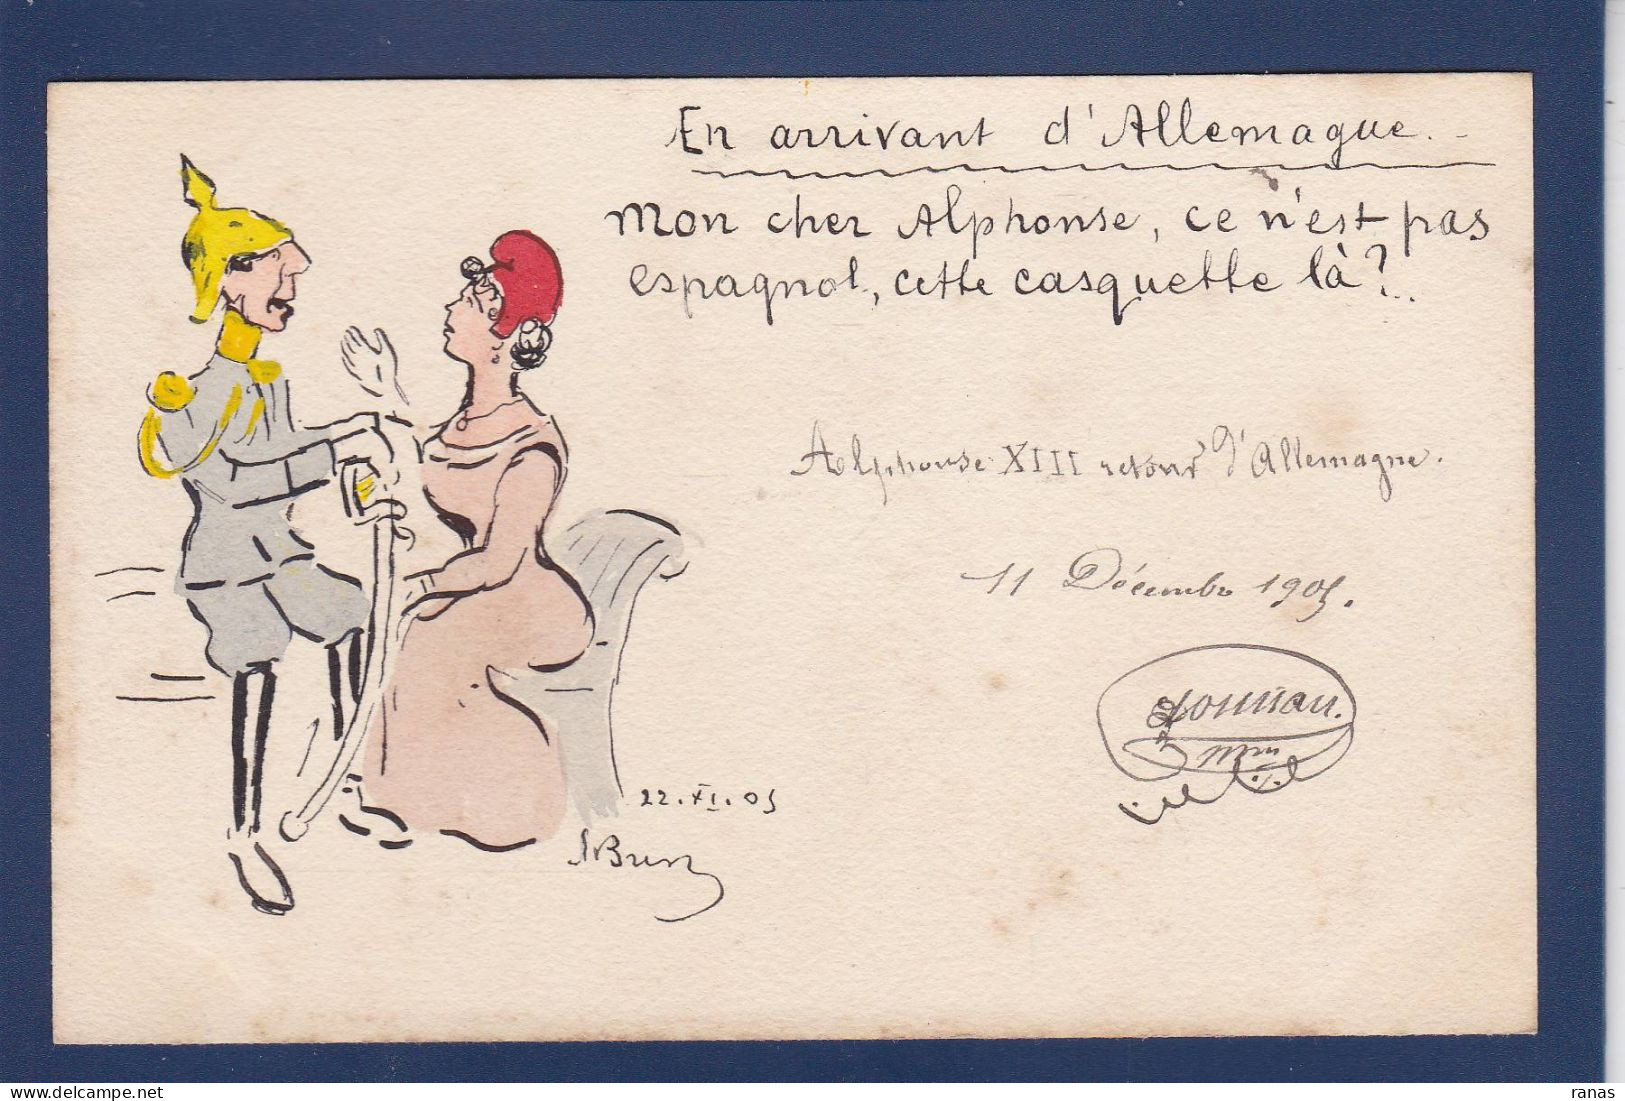 En arrivant d'Allemague.
mon cher Alphonse, ce n'est pas
espagnol, cette casquette là?..
Alphonse XIII retour d'Allemagne.
11 Décembre 1905.
22.XI.05
ranas